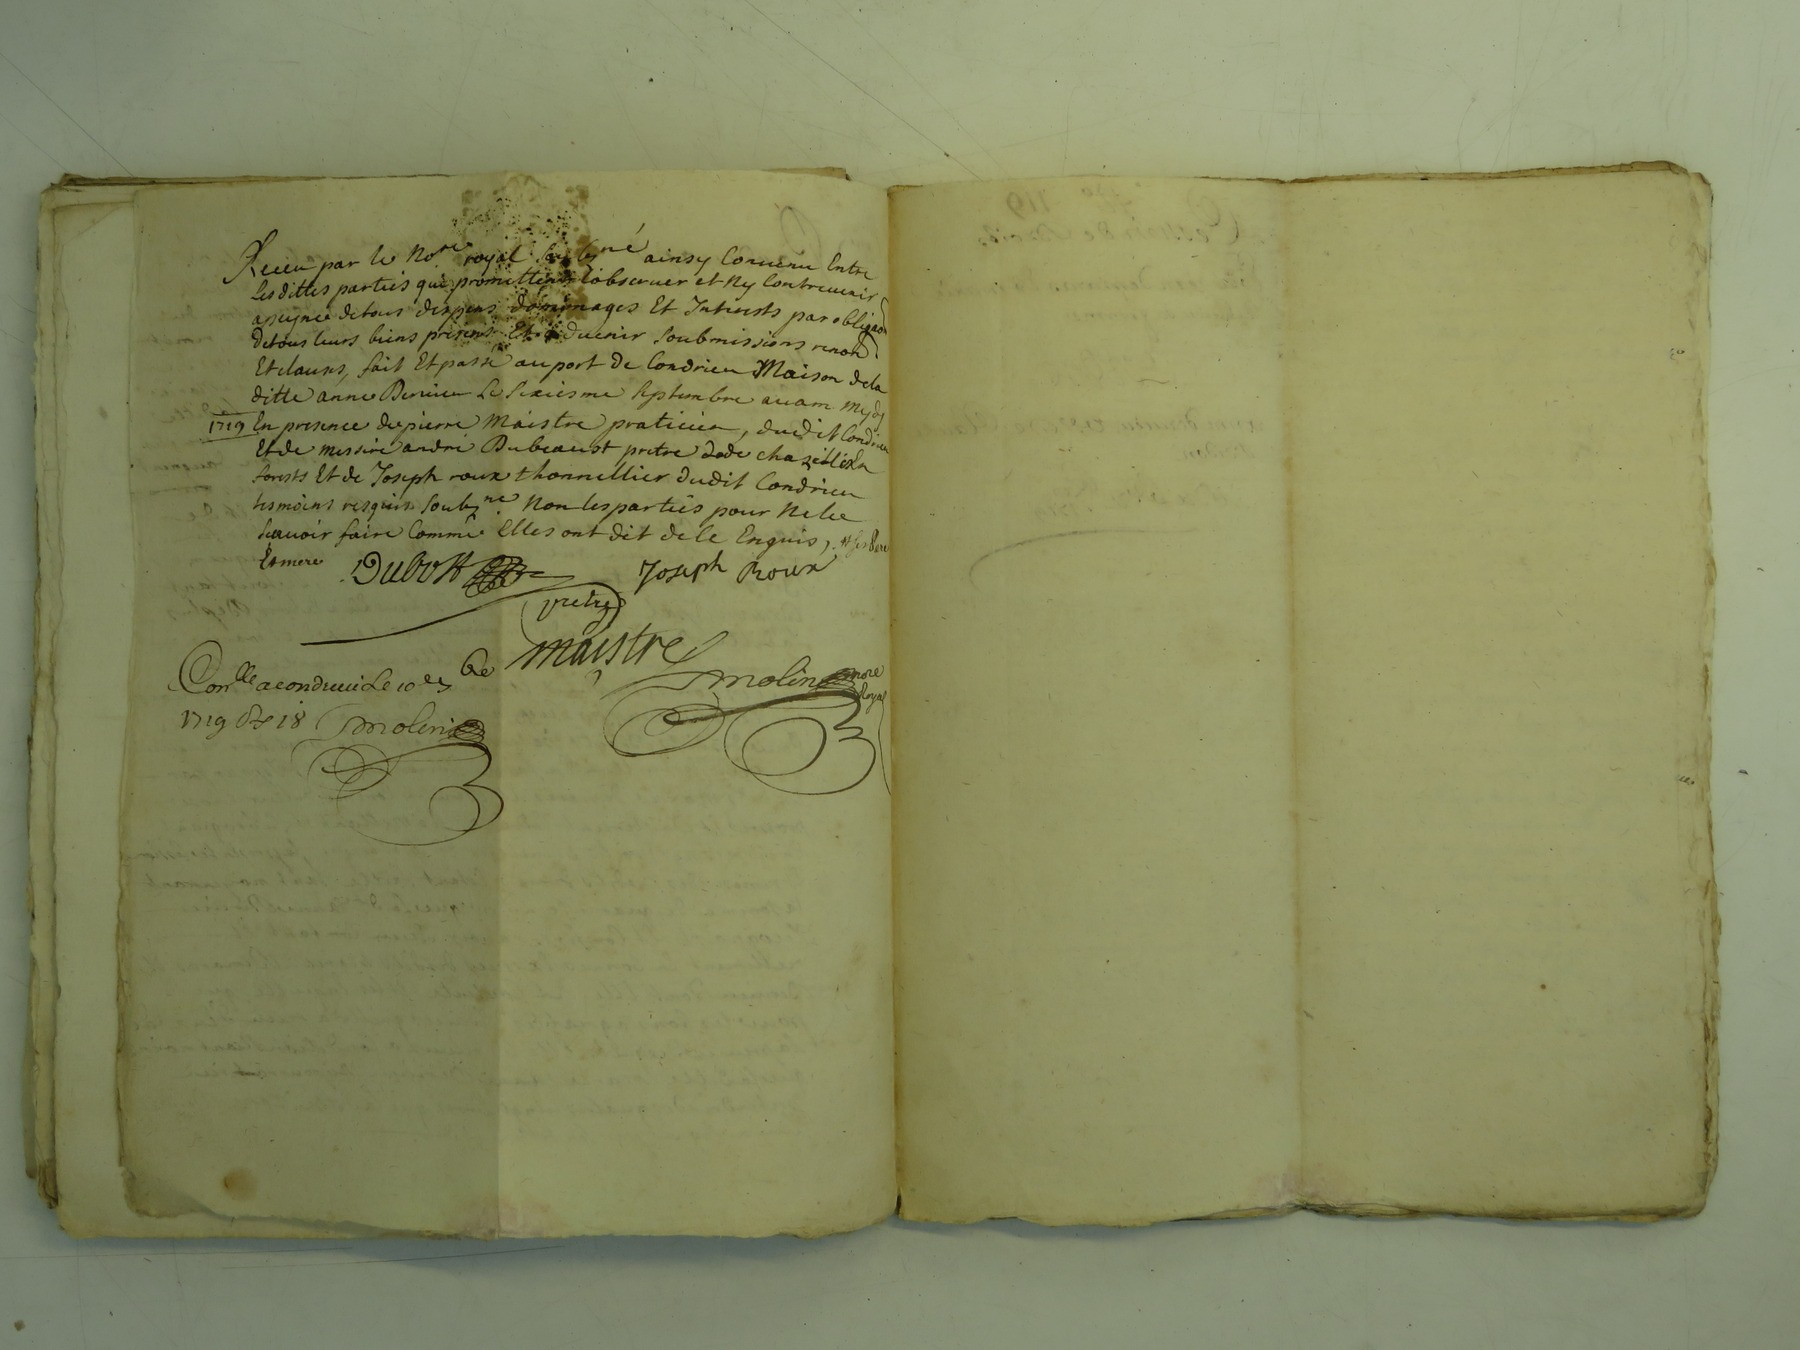 Receu par le No.re royal soubz.né ainsy Conuenu Entre
Lesdittes parties qui promettent lobseruer et Ny Contreuenir
apeyne detous despens dommages Et Interests par obligaon
detous leurs biens presents Et aduenir Soubmissions renon
Et clauses, fait Et passé au port de Condrieu Maison dela
ditte anne Le sixiesme Septembre auam Mydy
1719 En presence de pierre Maistre praticien, dudit Condrieu
Et de messire andré pretre de chazelles
forests Et de Joseph roux thonnellier dudit Condrieu
tesmoins resquis soubz.né Non les parties pour Ne le
Scauoir faire Comme Elles ont dit de ce Enquis,
Et mere
Dubost Joseph Roux
pretre
maistre
molin nore
Royal
Con.lle a condrieu Le 10e 7bre
1719 18 molin